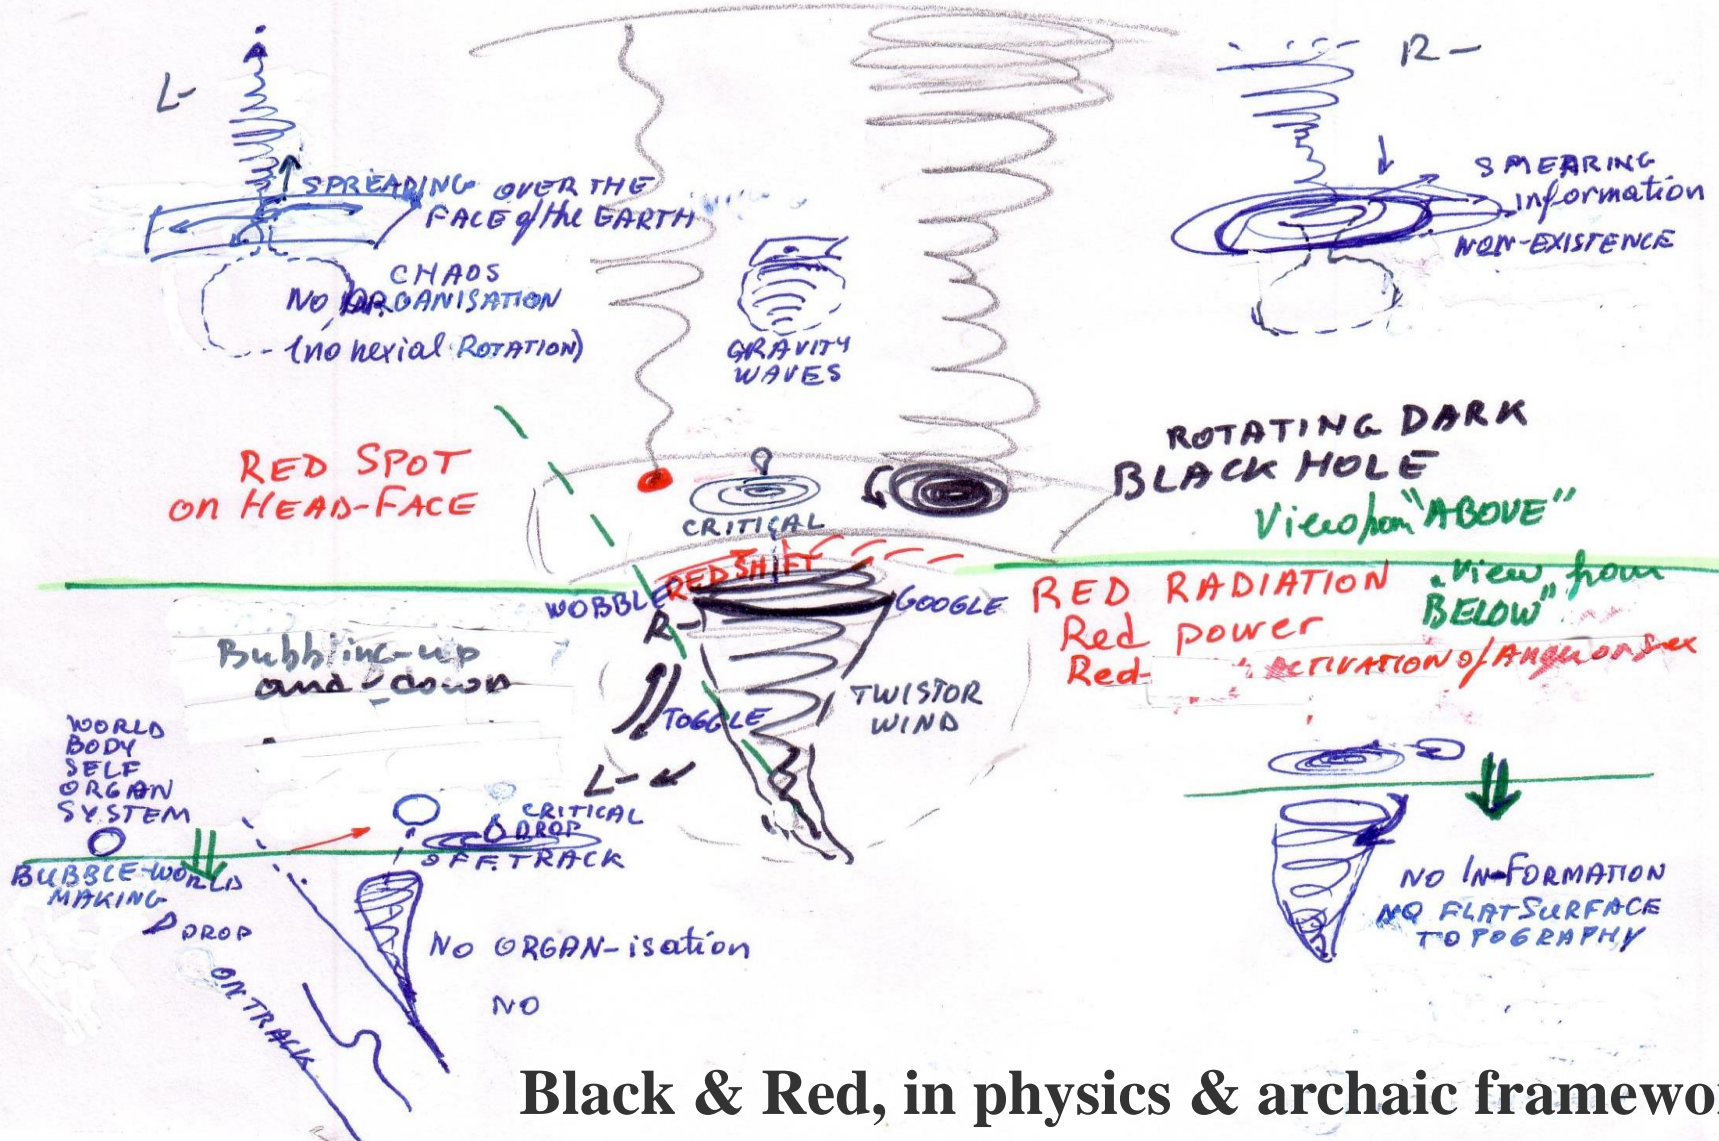 L-
R-
SPREADING OVER THE
FACE of the EARTH
CHAOS
NO ORGANISATION
(no hexial ROTATION)
GRAVITY
WAVES
SMEARING
information
NON-EXISTENCE
RED SPOT
on HEAD-FACE
CRITICAL
ROTATING DARK
BLACK HOLE
View from "ABOVE"
REDSHIFT
WOBBLE
GOOGLE
R-
RED RADIATION
Red power
Red-
ACTIVATION of
"View from
BELOW"
Bubbling-up
and-down
TOGGLE
TWISTOR
WIND
L-
WORLD
BODY
SELF
ORGAN
SYSTEM
BUBBLE-WORLD
MAKING
DROP
ON TRACK
CRITICAL
DROP
OFF TRACK
NO ORGAN-isation
NO
NO IN-FORMATION
NO FLAT SURFACE
TOPOGRAPHY
Black & Red, in physics & archaic framewo